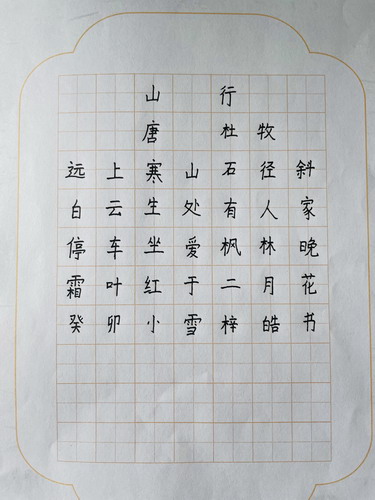 山行
唐杜牧
远上寒山石径斜
白云生处有人家
停车坐爱枫林晚
霜叶红于二月花
癸卯小雪梓皓书